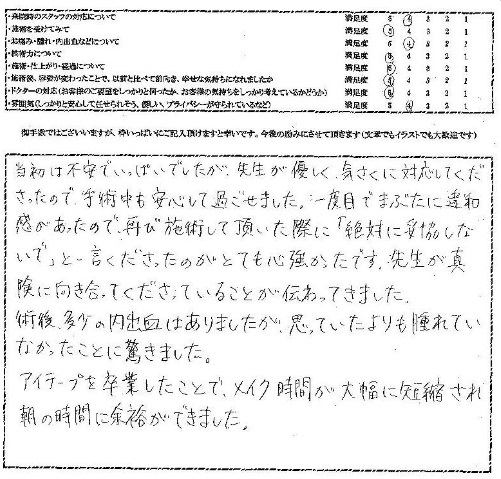 ・来院時のスタッフの対応について 満足度 5 4 3 2 1
・施術を受けてみて 満足度 5 4 3 2 1
・お痛み・腫れ・内出血などについて 満足度 5 4 3 2 1
・技術力について 満足度 5 4 3 2 1
・施術・仕上がり・経過について 満足度 5 4 3 2 1
・施術後、容姿が変わったことで、以前と比べて前向き、幸せな気持ちになれましたか 満足度 5 4 3 2 1
・ドクターの対応(お客様のご要望をしっかりと伺ったか、お客様の気持ちをしっかり考えているかどうか) 満足度 5 4 3 2 1
・雰囲気(しっかりと安心して任せられそう、優しい、プライバシーが守られているなど) 満足度 5 4 3 2 1
御手数ではございいますが、枠いっぱいにご記入頂けますと幸いです。今後の励みにさせて頂きます(文章でもイラストでも大歓迎です)
当初は不安でいっぱいでしたが、先生が優しく、気さくに対応してくだ
さったので、手術中も安心して過ごせました。一度目でまぶたに違和
感があったので、再び施術して頂いた際に「絶対に妥協しな
いで」と一言くださったのがとても心強かったです。先生が真
険に向き合ってくださっていることが伝わってきました。
術後、多少の内出血はありましたが、思っていたよりも腫れてい
なかったことに驚きました。
アイテープを卒業したことで、メイク時間が大幅に短縮され
朝の時間に余裕ができました。